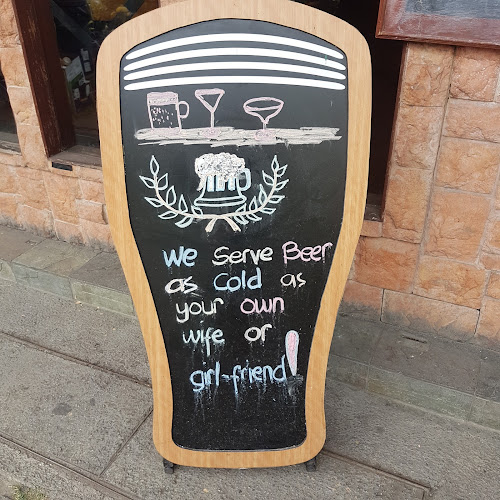 We Serve Beer
as Cold as
your own
wife or
girl-friend!